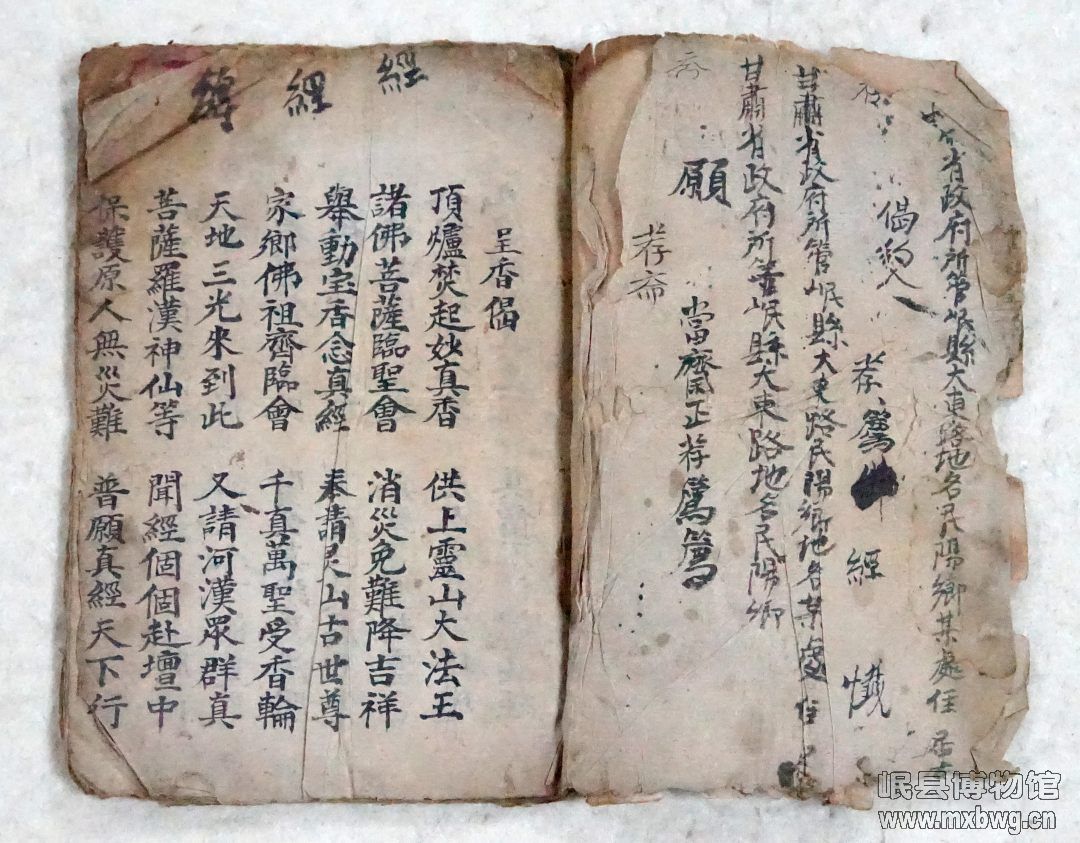 省政府所管岷縣大東路地名民陽鄉某處住居
偈約人
荐篤經懺
甘肅省政府所管岷縣大東路民陽鄉地名某處住
甘肅省政府所管岷縣大東路地名民陽鄉
願
當齋正荐篤篤
荐齋
經經
呈香偈
頂爐焚起妙真香 供上靈山大法王
諸佛菩薩臨聖會 消災免難降吉祥
舉動宝香念真經 奉請灵山古世尊
家鄉佛祖齊臨會 千真萬聖受香輪
天地三光來到此 又請河漢眾群真
菩薩羅漢神仙等 聞經個個赴壇中
保護原人無災難 普願真經天下行
岷县博物馆
www.mxbwg.cn